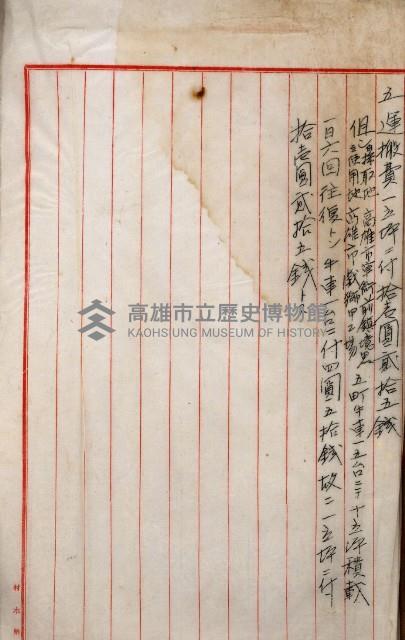 五、運搬費一立坪ニ付拾壹圓貳拾五錢
但シ採取地高雄市
至使用地高雄市戲獅甲工場
五町牛車一五台ニテ十立坪積載
一日六回往復トシ牛車一台ニ付四圓五拾錢故ニ一立坪ニ付
拾壹圓貳拾五錢トス
高雄市立歷史博物館
KAOHSIUNG MUSEUM OF HISTORY